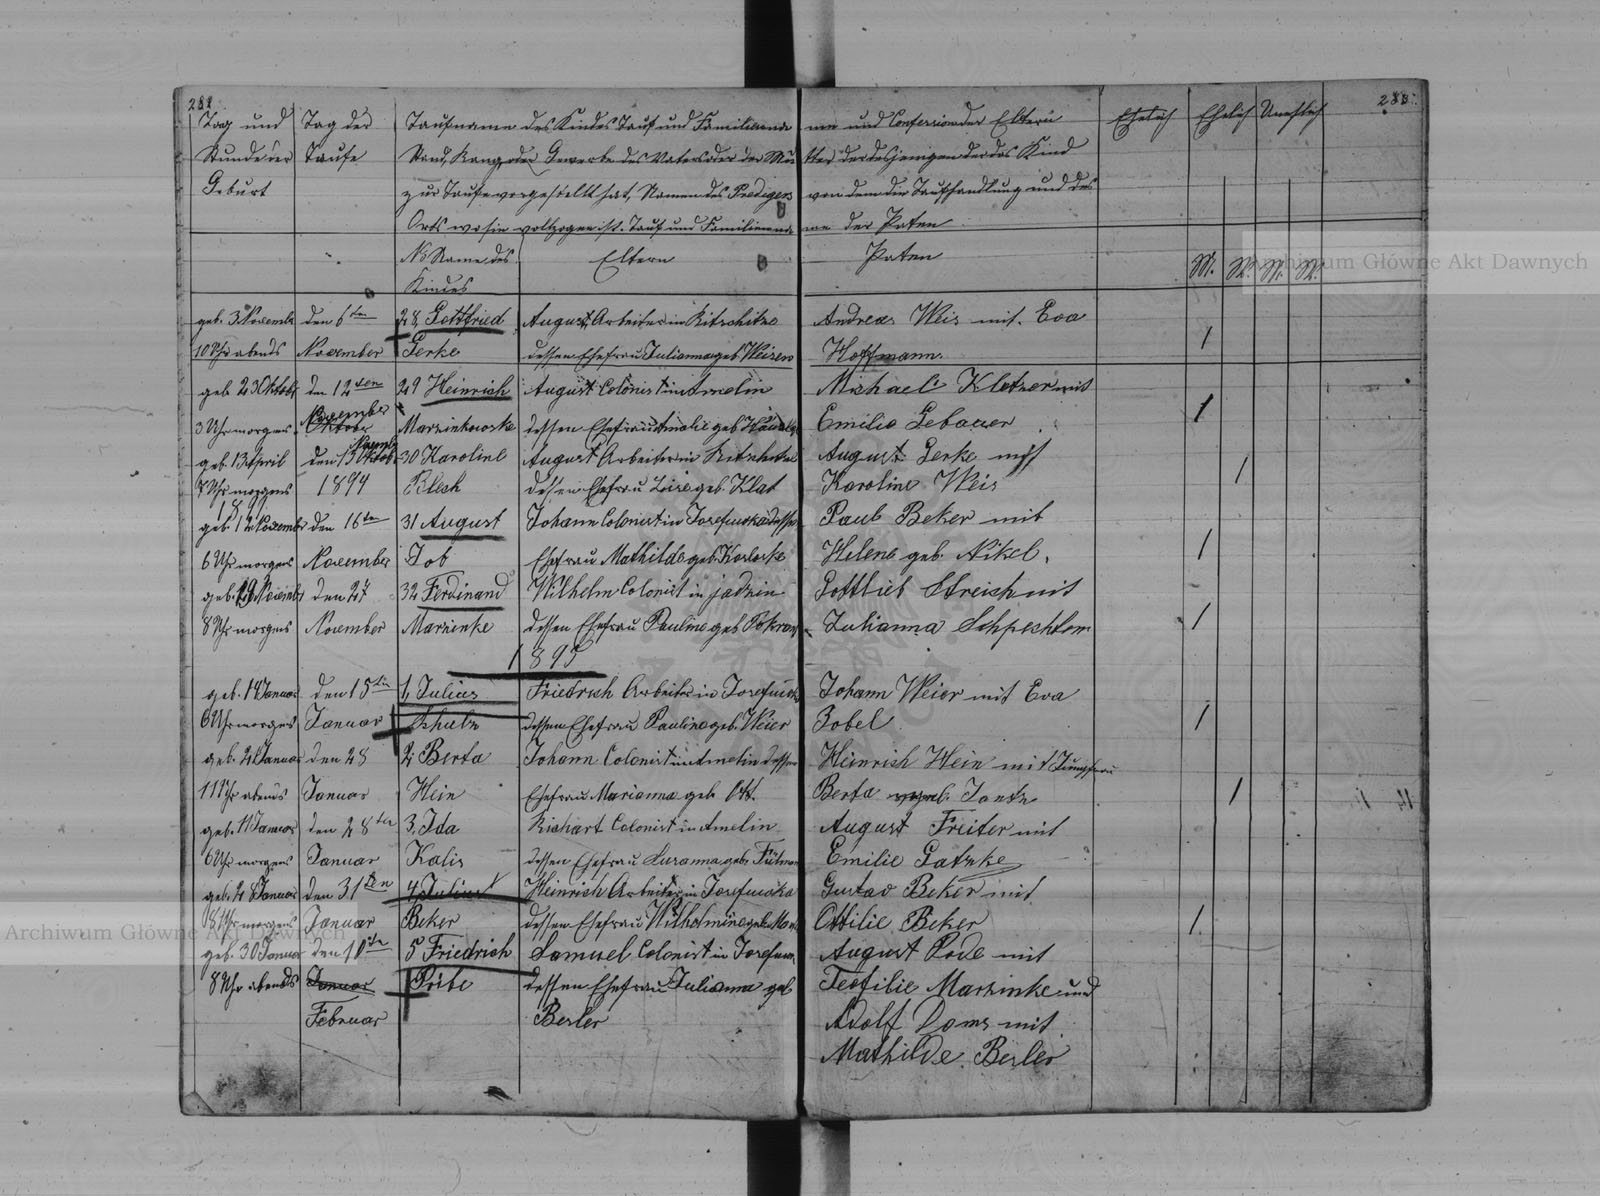 282
Tag und Tag der Taufname des Kindes Tauf und Familienna
me und Confession der Eltern Ehelich Unehelich 283
Stunde der Taufe Stand, Rang oder Gewerbe des Vaters oder der Mu
tter der desjenigen der das Kind
Geburt zur Taufe vorgestellt hat, Namen des Predigers
von dem die Taufhandlung und des
Orts wo sie vollzogen ist. Tauf und Familienna
me der Paten
No Name des Eltern Paten M. W. M. W.
Kindes
geb. 3 Novembr den 6ten 28, Gottfried August, Arbeiter in Kitschitze Andreas Weis mit. Eva
10 Uhr abends November Gerke dessen Ehefrau Julianna geb Weisen Hoffmann. 1
geb. 23 Oktobr den 12ten 29 Heinrich August Colonist in Amelin Michael Kletzer mit
November
3 Uhr morgens Oktober Marzinkowske dessen Ehefrau Amalie geb Emilie Gebauer 1
Novembr
geb. 13 April den 13 Oktobr 30 Karoline August Arbeiter in August Gerke mit
7 Uhr morgens 1894 Blesk dessen Ehefrau geb. Klat Karoline Weis 1
geb. 12 Novembr den 16ten 31 August Johann Colonist in Josefwoka dessen Paul Beker mit
6 Uhr morgens November Job Ehefrau Mathilde geb. Helene geb. Nikel. 1
geb. Novembr den 27 32 Ferdinand Wilhelm Colonist in Gottlieb Streich mit
8 Uhr morgens November Marzinke dessen Ehefrau Pauline geb Julianna 1
1895
geb. 14 Januar den 15ten 1, Julius Friedrich Arbeiter in Johann Weier mit Eva
6 Uhr morgens Januar Schulz dessen Ehefrau Pauline geb. Weier Zobel 1
geb. Januar den 28 2, Berta Johann Colonist in Amelin dessen Heinrich Hein mit Jungfrau
11 Uhr abends Januar Hein Ehefrau Marianna geb. Ott. Berta Jantz 1
geb. 11 Januar den 28ten 3, Ida Richart Colonist in Amelin August Freiter mit
6 Uhr morgens Januar Kalis dessen Ehefrau Susanna geb. Emilie Gatzke
geb. 28 Januar den 31ten 4 Julius Heinrich Arbeiter in Josefwoka Gustav Beker mit
8 Uhr morgens Januar Beker dessen Ehefrau Wilhelmine geb. Ottilie Beker 1
geb. 30 Januar den 10ten 5 Friedrich Samuel Colonist in August Rode mit
8 Uhr abends Januar Pribe dessen Ehefrau Julianna geb Teofilie Marzinke und
Februar Besler Adolf Doms mit
Mathilde Besler
Archiwum Główne Akt Dawnych
Archiwum Główne Akt Dawnych